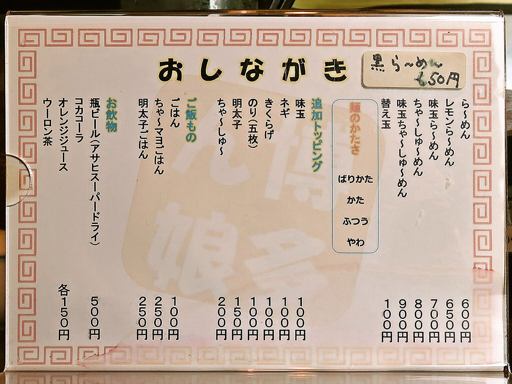 おしながき
黒らーめん
650円
らーめん 600円
レモンらーめん 650円
味玉らーめん 700円
ちゃーしゅーめん 800円
味玉ちゃーしゅーめん 900円
替え玉 100円
麺のかたさ
ばりかた
かた
ふつう
やわ
追加トッピング
味玉 100円
ネギ 100円
きくらげ 100円
のり(五枚) 100円
明太子 150円
ちゃーしゅー 200円
ご飯もの
ごはん 100円
ちゃーマヨごはん 250円
明太子ごはん 250円
お飲物
瓶ビール(アサヒスーパードライ) 500円
コカコーラ
オレンジジュース 各150円
ウーロン茶